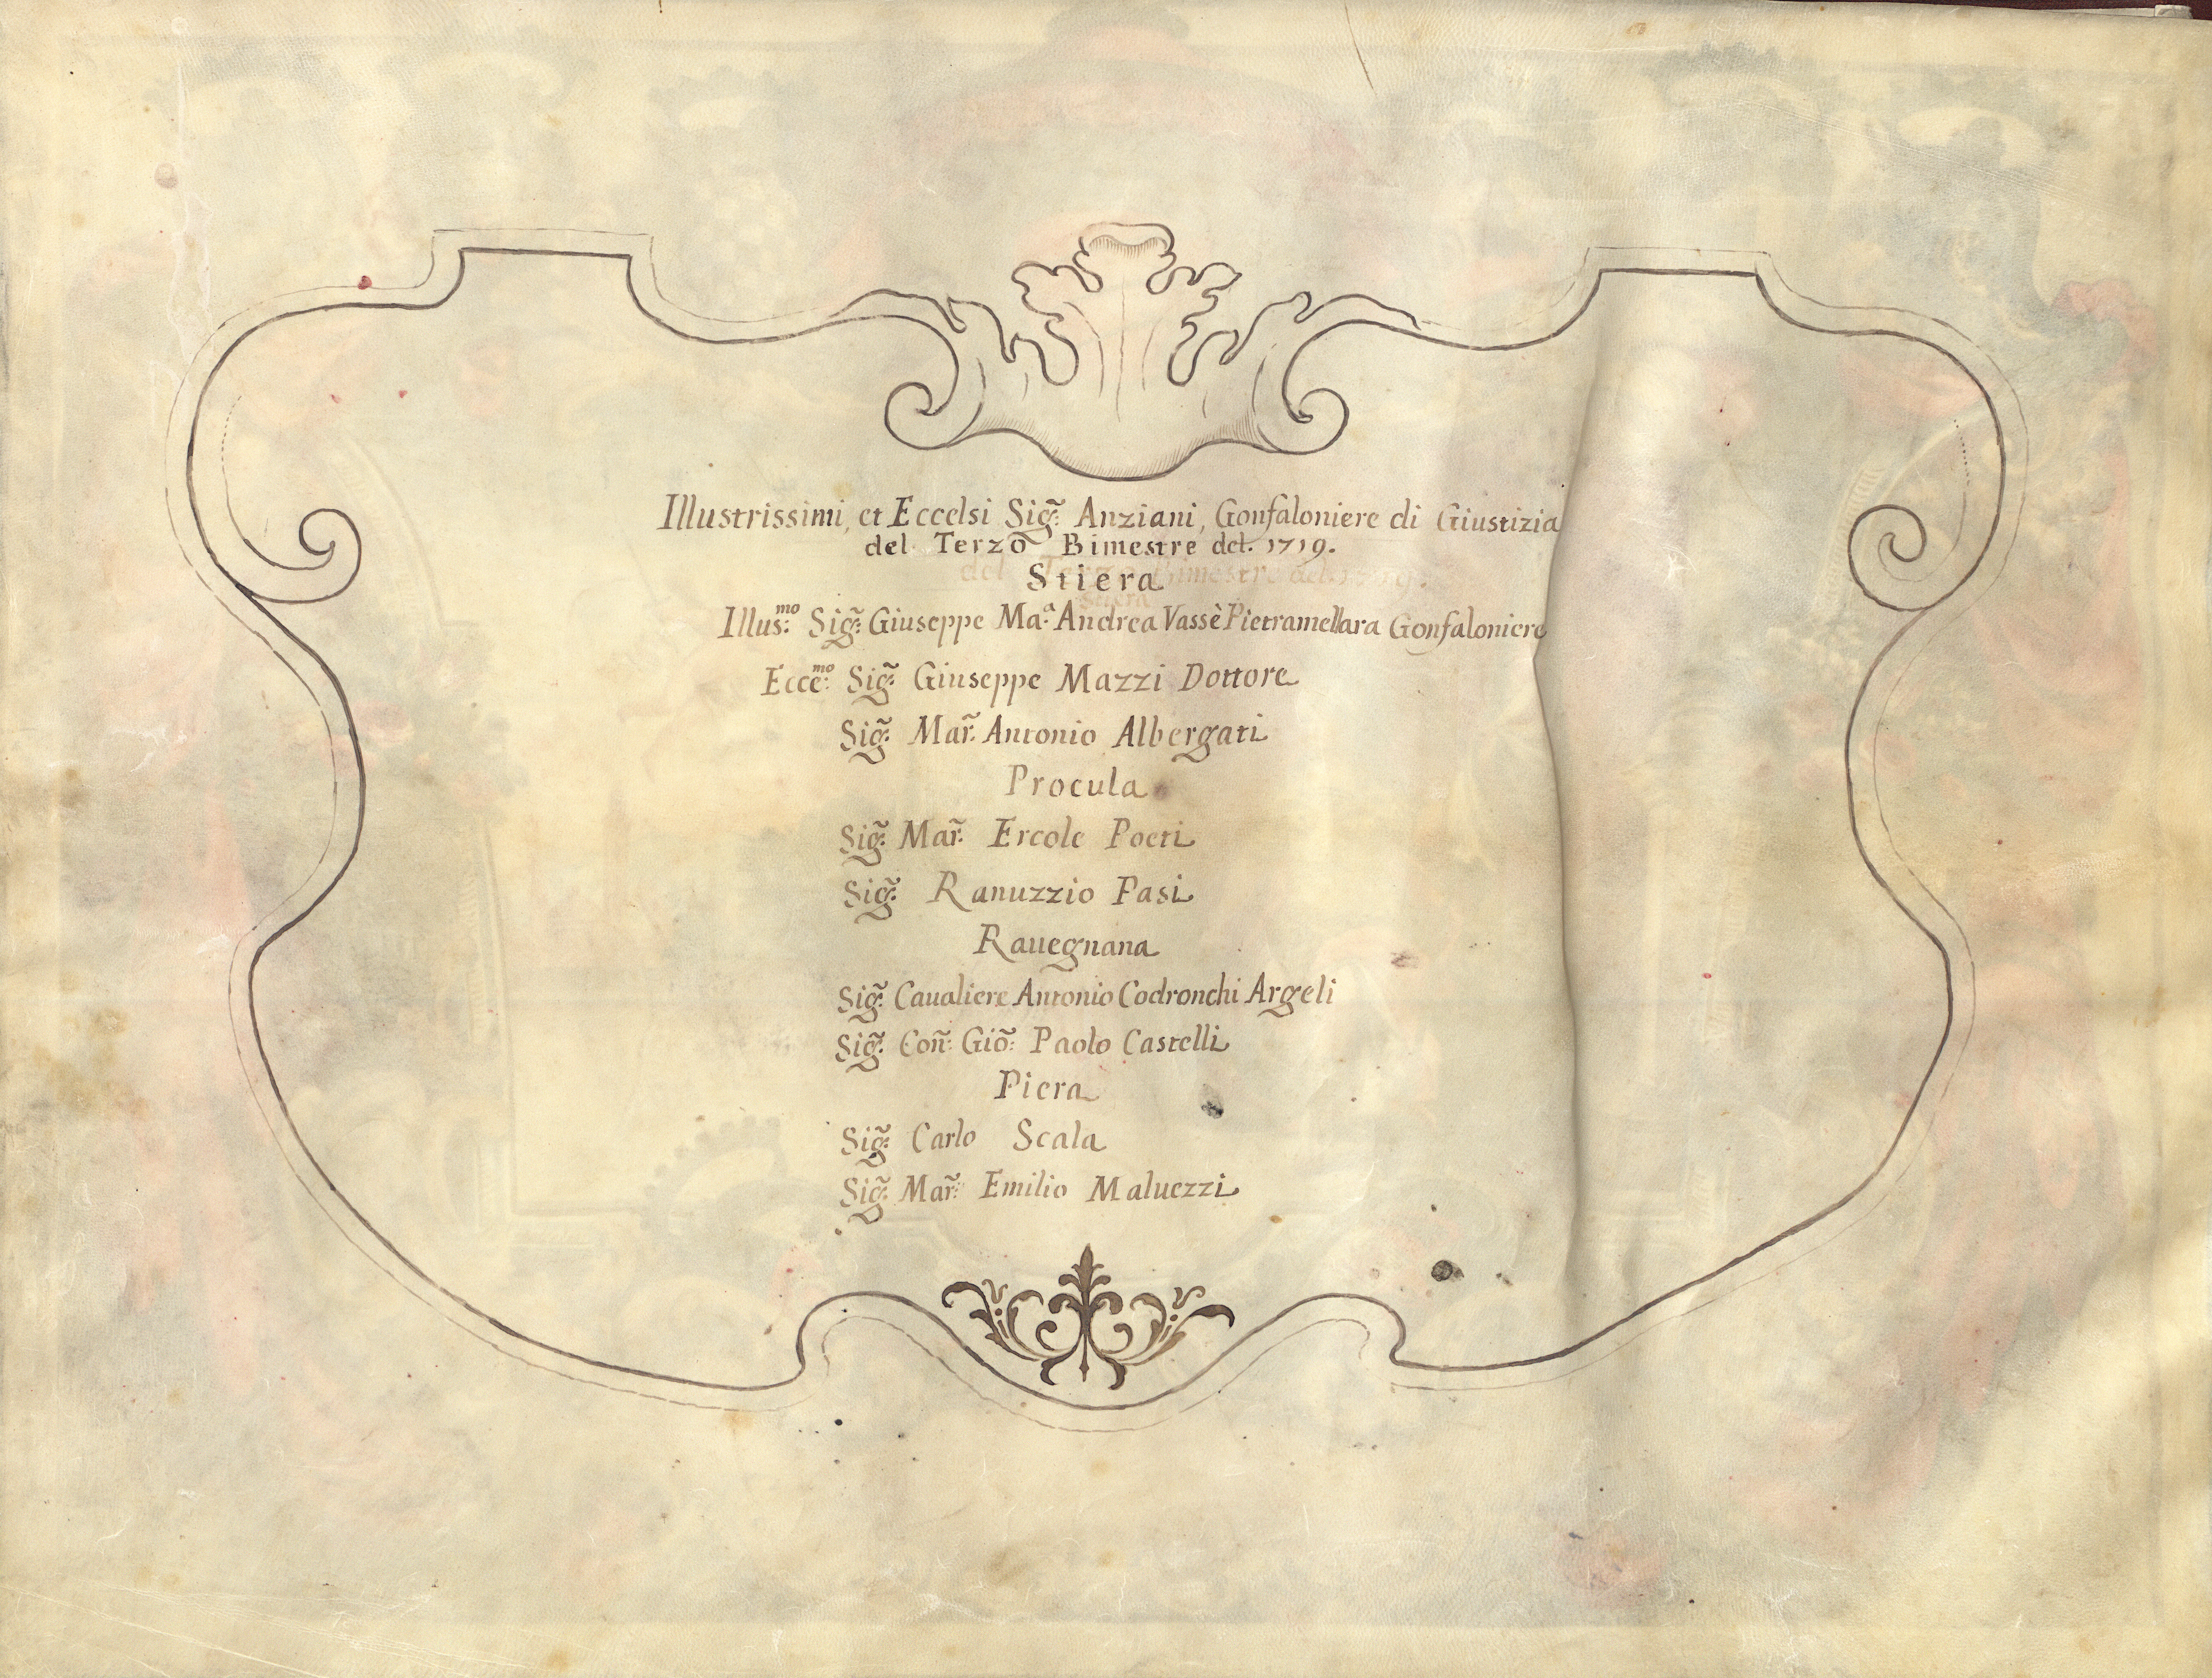 Illustrissimi, et Eccelsi Sig̃: Anziani, Gonfaloniere di Giustizia
del Terzo Bimestre del. 1719.
Stiera
Illus:ᵐᵒ Sig̃: Giuseppe Ma:ᵃ Andrea Vassè Pietramellara Gonfaloniere
Ecce:ᵐᵒ Sig̃: Giuseppe Mazzi Dottore
Sig̃: Mar̃: Antonio Albergati
Procula
Sig̃: Mar̃: Ercole Poeti
Sig̃: Ranuzzio Pasi
Rauegnana
Sig̃: Caualiere Antonio Codronchi Argeli
Sig̃: Coñ: Giõ: Paolo Castelli
Piera
Sig̃: Carlo Scala
Sig̃: Mar̃: Emilio Maluezzi